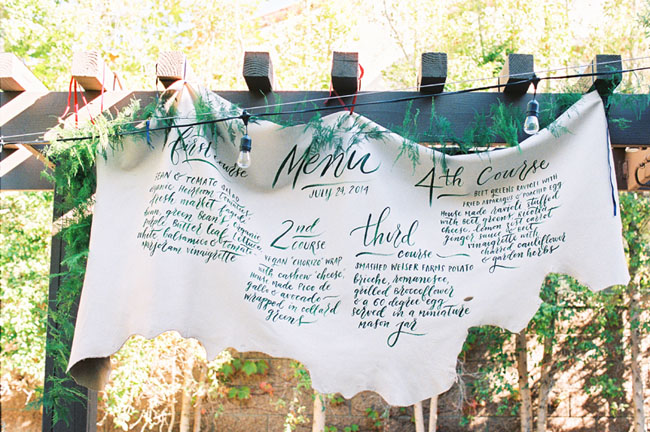 first
course
BEAN & TOMATO SALAD
organic Heirloom tomatoes,
fresh market
beans, green beans, organic
purple, Butter leaf lettuce
white balsamic & tomato
marjoram vinaigrette
Menu
JULY 24, 2014
2nd
COURSE
VEGAN 'CHORIZO' WRAP
with cashew 'cheese',
HOUSE MADE PICO de
gallo & avocado
wrapped in collard
greens
third
course
SMASHED WEISER FARMS POTATO
Brioche, romanesco,
grilled broccoflower
& a 60 degree egg
served in a miniature
mason jar
4th COURSE
BEET GREENS RAVIOLI WITH
FRIED ASPARAGUS & POACHED EGG
HOUSE MADE ravioli stuffed
with Beet greens & ricotta
cheese, lemon zest carrot
ginger sauce & Beet
vinaigrette with
charred cauliflower
& garden herbs